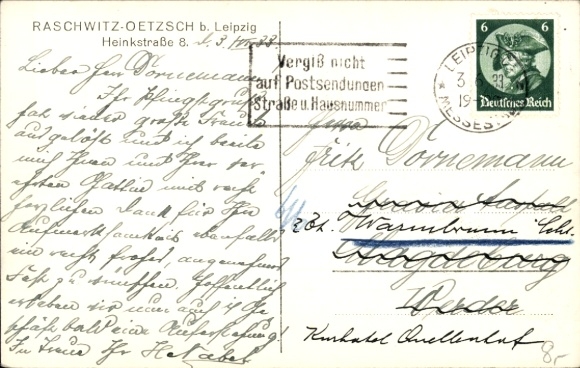 RASCHWITZ-OETZSCH b. Leipzig
Heinkstraße 8.
Vergiß nicht
auf Postsendungen
Straße u. Hausnummer
LEIPZIG
3
33
19
MESSEST
6 6
Deutsches Reich
Lieber Herr Dornemann
Ihr Pfingstgruß
hat wieder große Freude
ausgelöst und ich beeile
mich Ihnen und Ihrer ver
ehrten Gattin mit recht
herzlichem Dank für Ihre
Aufmerksamkeit ebenfalls
ein recht frohes, angenehmes
Fest zu wünschen. Hoffentlich
erleben wir nun auch
bald eine Auferstehung!
In Treue Ihr
Herrn
Fritz Dornemann
z. Zt. Warmbrunn Schl.
Magdeburg
Werder
Kurhotel Quellenhof
8,-